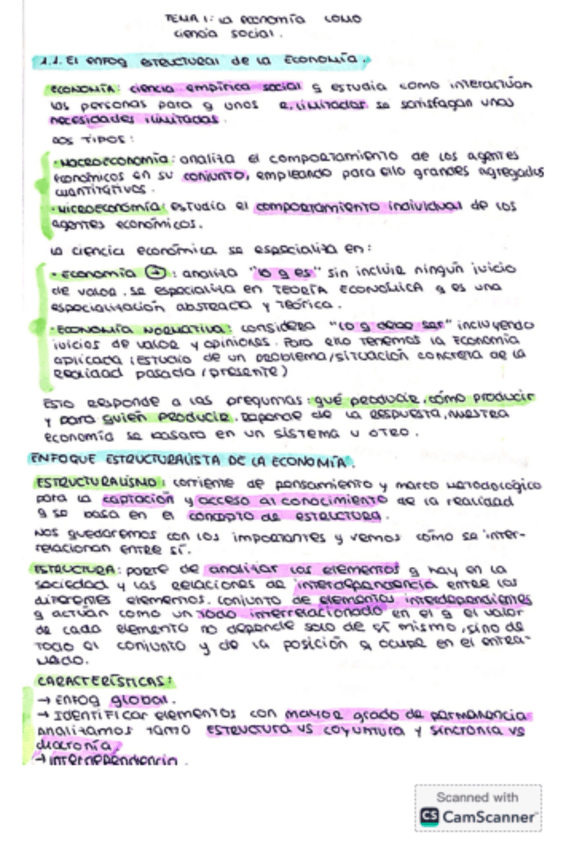 TEMA 1: La economía como
ciencia social.
1.1. El enfoq estructural de la Economía.
ECONOMÍA: ciencia empírica social q estudia como interactúan
las personas para q unos R. limitados se satisfagan unas
necesidades ilimitadas.
DOS TIPOS:
· MACROECONOMÍA: analiza el comportamiento de los agentes
económicos en su conjunto, empleando para ello grandes agregados
cuantitativos.
· MICROECONOMÍA: estudia el comportamiento individual de los
agentes económicos.
La ciencia económica se especializa en:
· ECONOMÍA (+): analiza "lo q es" sin incluir ningún juicio
de valor. Se especializa en TEORÍA ECONÓMICA y es una
especialización abstracta y teórica.
· ECONOMÍA NORMATIVA: considera "lo q debe ser" incluyendo
juicios de valor y opiniones. Para ello tenemos la Economía
aplicada (estudio de un problema/situación concreta de la
realidad pasada/presente)
Esto responde a las preguntas: qué producir, cómo producir
y para quién producir. Depende de la respuesta, nuestra
economía se basará en un sistema u otro.
ENFOQUE ESTRUCTURALISTA DE LA ECONOMÍA.
ESTRUCTURALISMO: corriente de pensamiento y marco metodológico
para la captación y acceso al conocimiento de la realidad
q se basa en el concepto de estructura.
Nos quedaremos con los importantes y vemos cómo se inter-
relacionan entre sí.
ESTRUCTURA: parte de analizar los elementos q hay en la
sociedad y las relaciones de interdependencia entre los
diferentes elementos. Conjunto de elementos interdependientes
q actúan como un todo interrelacionado en el q el valor
de cada elemento no depende solo de sí mismo, sino de
todo el conjunto y de la posición q ocupe en el entra-
mado.
CARACTERÍSTICAS:
→ Enfoq global.
→ Identificar elementos con mayor grado de permanencia
Analizamos tanto ESTRUCTURA VS COYUNTURA y sincronía vs
diacronía.
→ interdependencia.
Scanned with
CS CamScanner